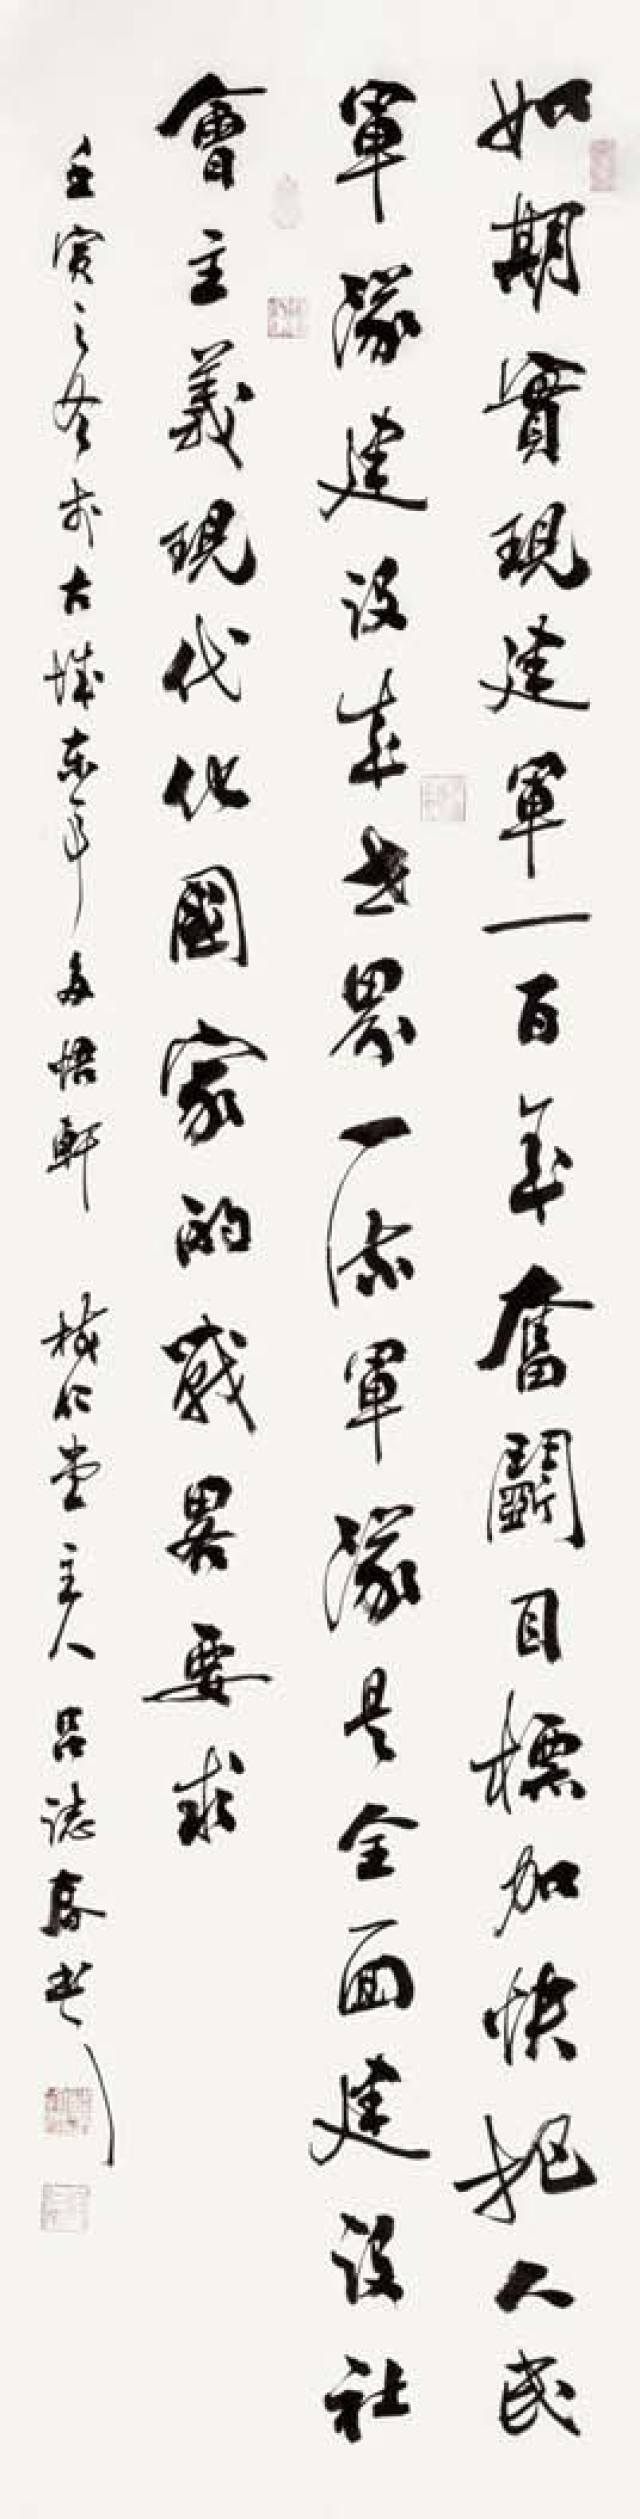 如期實現建軍一百年奮鬭目標加快把人民
軍隊建設成世界一流軍隊是全面建設社
會主義現代化國家的戰畧要求
壬寅之冬於古城東 悟軒 棫仁堂主人呂誌春書